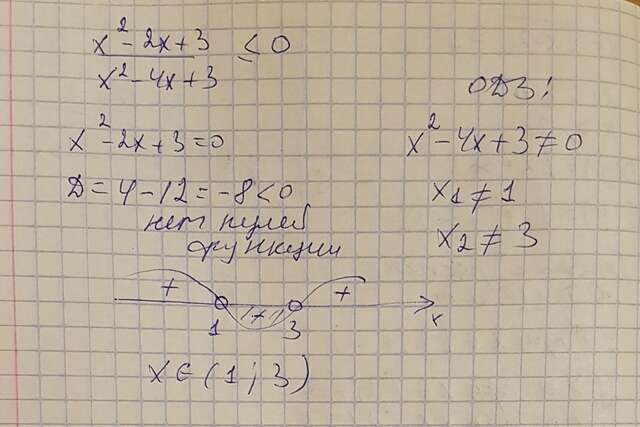 x² - 2x + 3 ≤ 0
x² - 4x + 3
ОДЗ:
x² - 2x + 3 = 0
x² - 4x + 3 ≠ 0
D = 4 - 12 = -8 < 0
x₁ ≠ 1
нет нулей
функции
x₂ ≠ 3
+ +
1 3 x
x ∈ (1; 3)